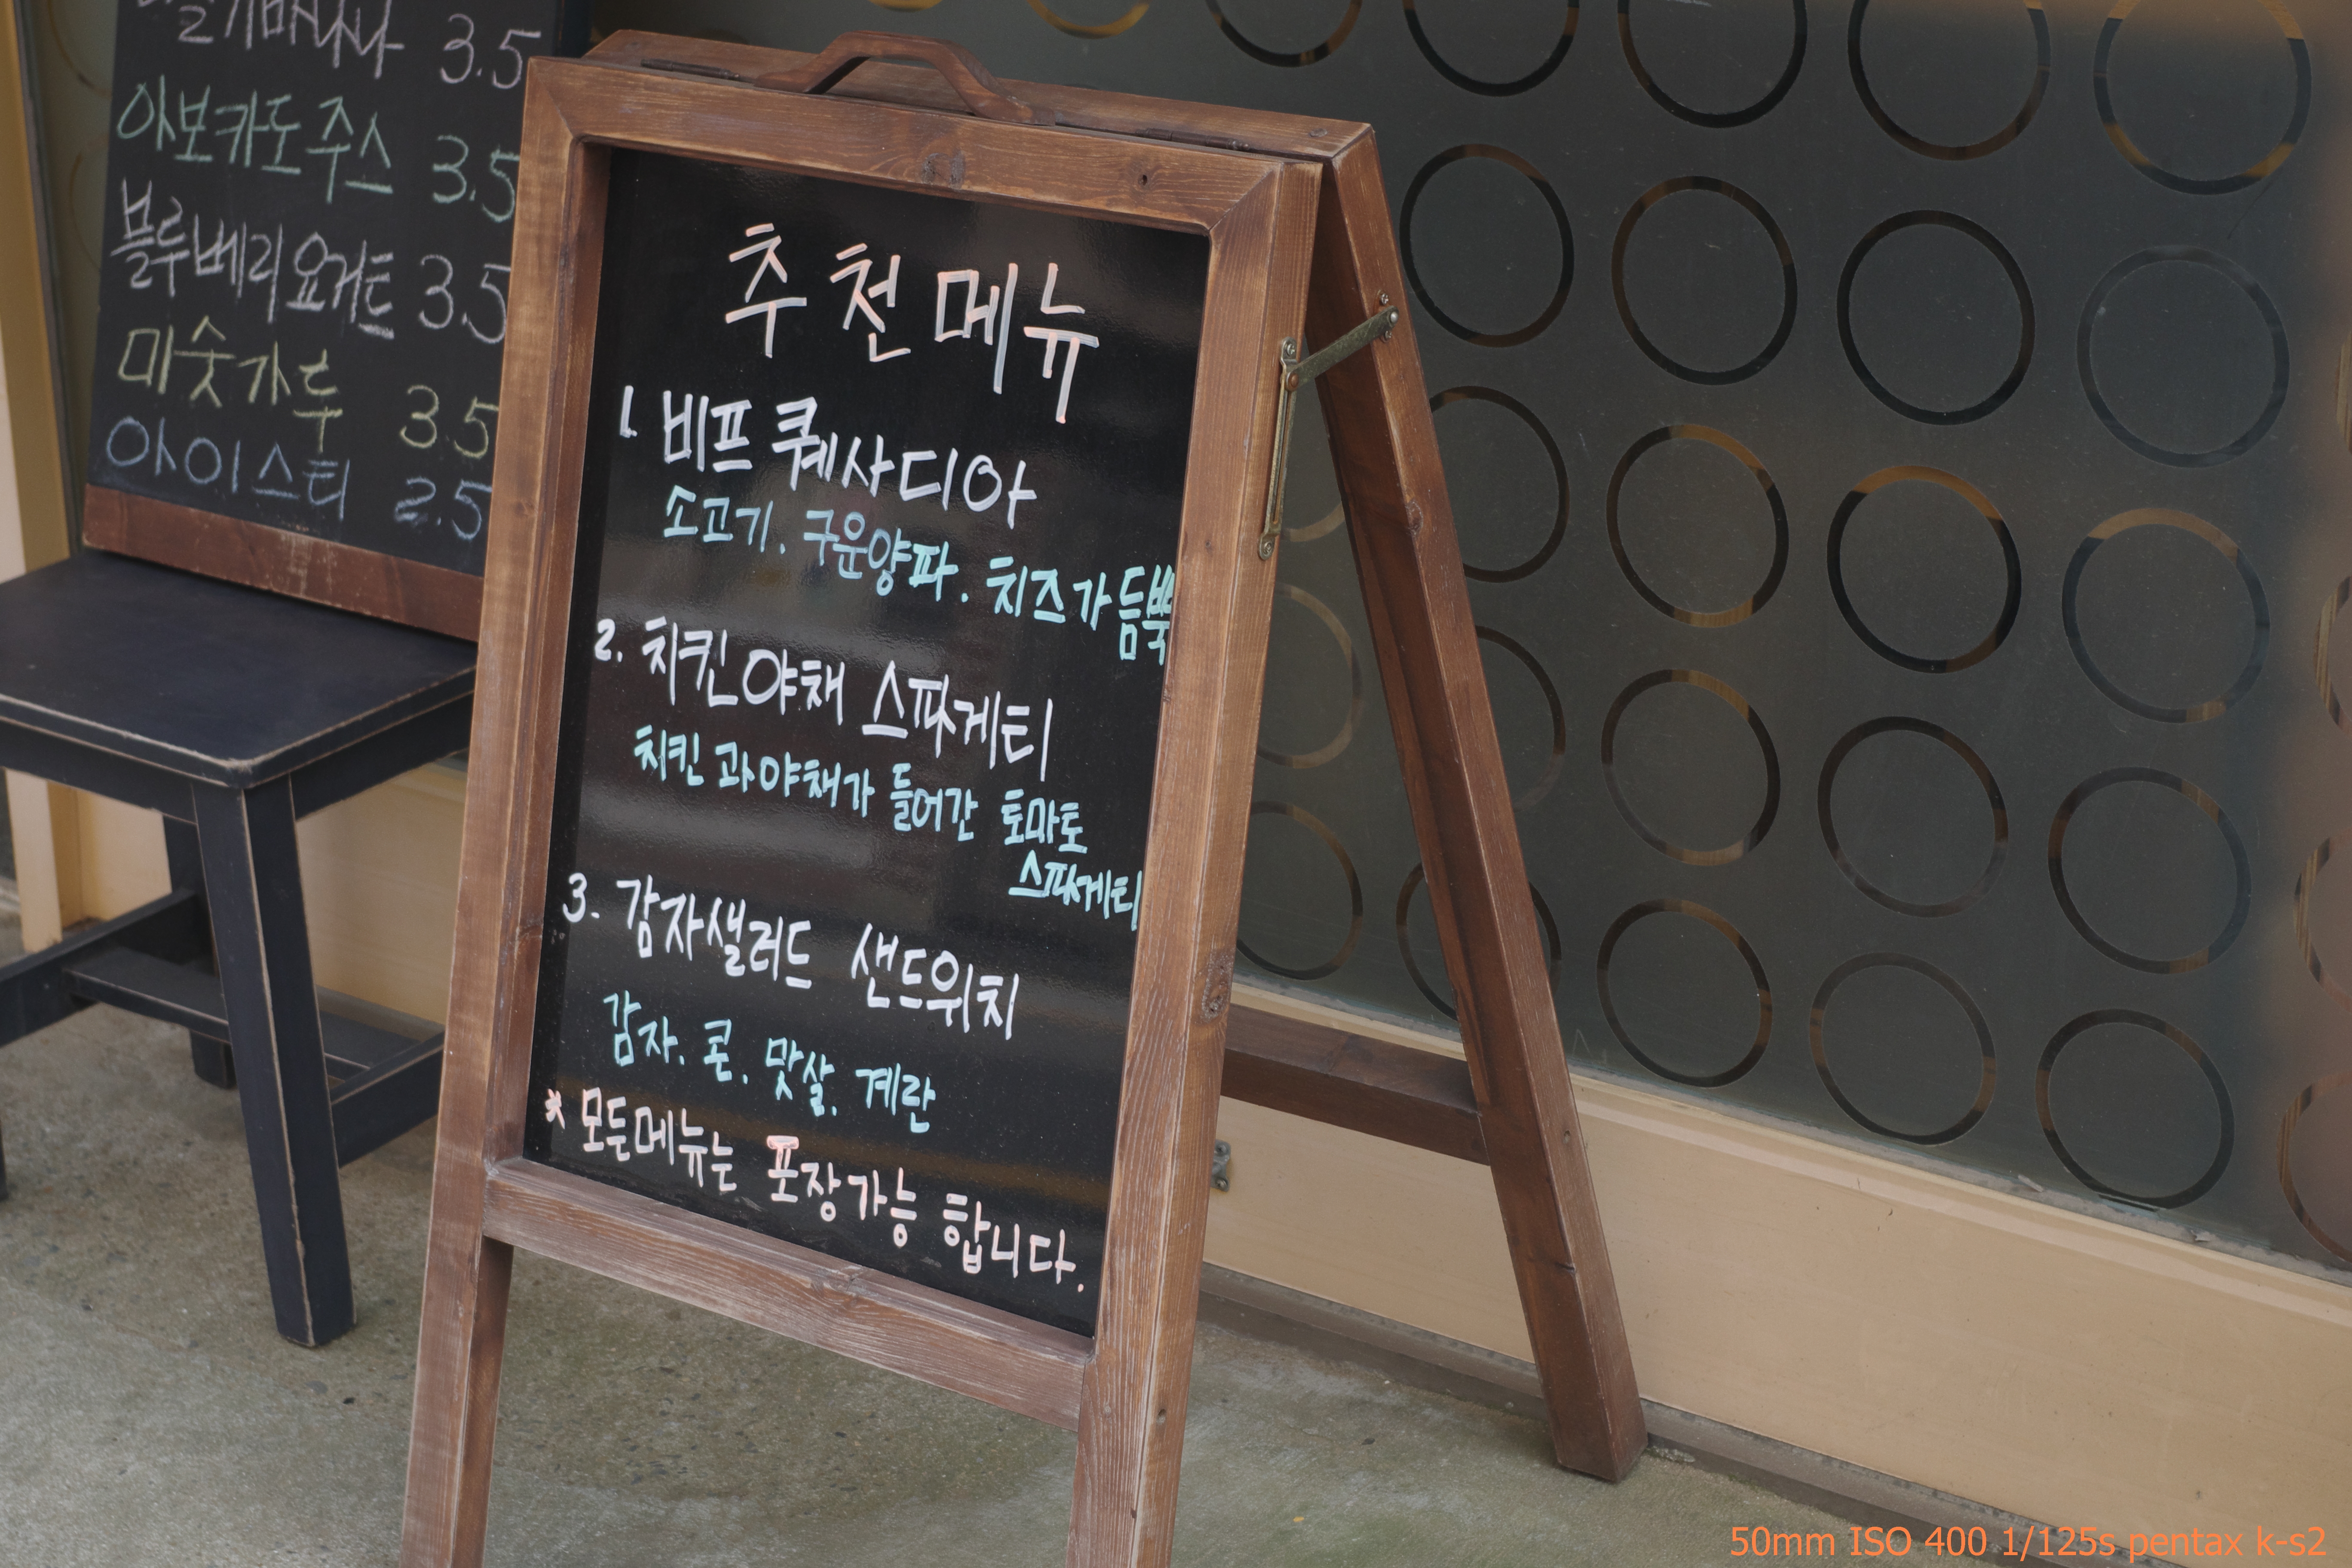 3.5
아보카도주스 3.5
블루베리요거트 3.5
미숫가루 3.5
아이스티 2.5
추천메뉴
1. 비프 퀘사디아
소고기. 구운양파. 치즈가 듬뿍
2. 치킨야채 스파게티
치킨과야채가 들어간 토마토
스파게티
3. 감자샐러드 샌드위치
감자. 콘. 맛살. 계란
* 모든메뉴는 포장가능 합니다.
50mm ISO 400 1/125s pentax k-s2